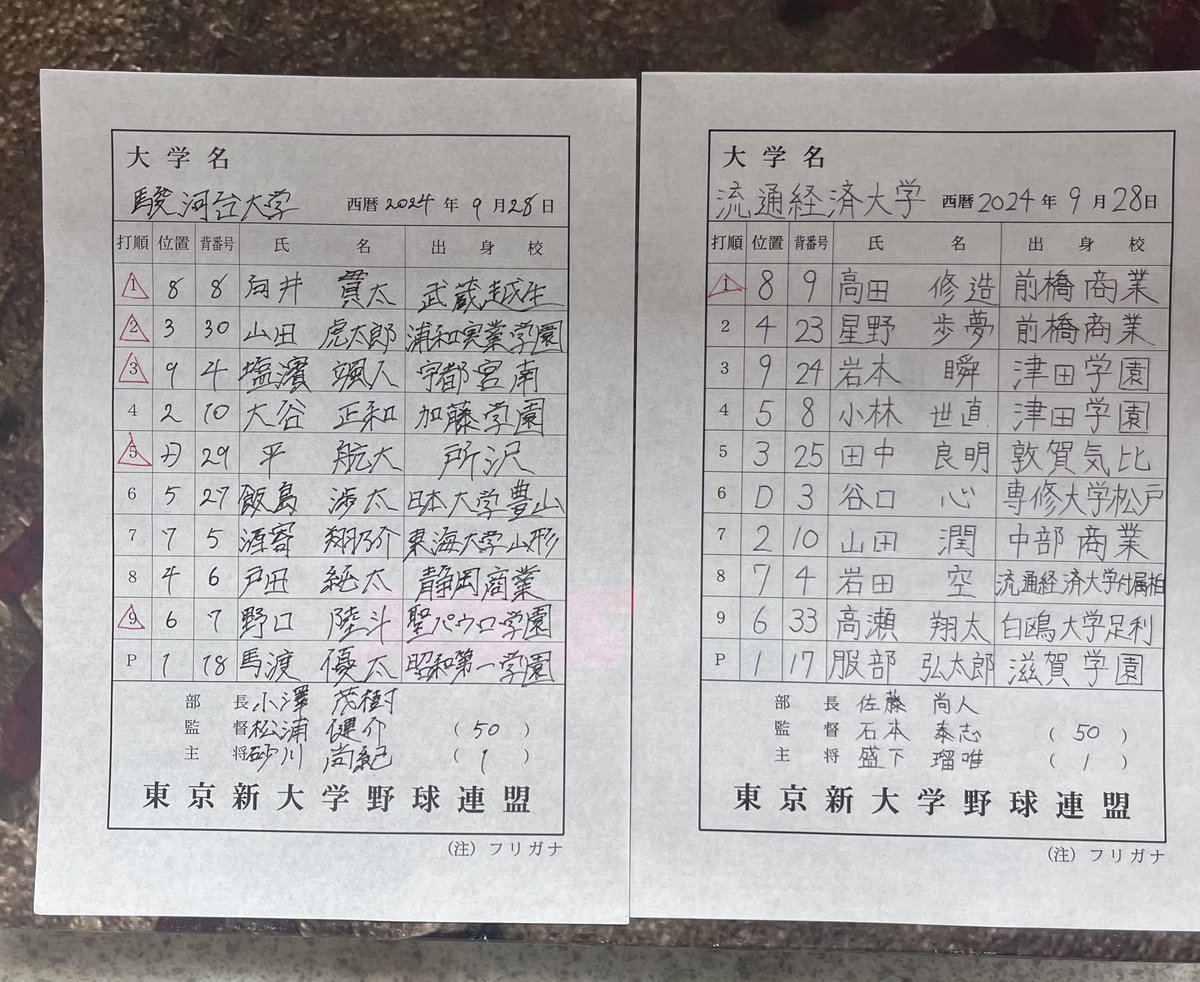 大学名
駿河台大学 西暦2024年9月28日
打順 位置 背番号 氏名 出身校
1 8 8 向井 貫太 武蔵越生
2 3 30 山田 虎太郎 浦和実業学園
3 9 4 塩濱 颯人 宇都宮南
4 2 10 大谷 正和 加藤学園
5 D 29 平 航大 所沢
6 5 27 飯島 渉太 日本大学豊山
7 7 5 酒寄 翔乃介 東海大学山形
8 4 6 戸田 純太 静岡商業
9 6 7 野口 陸斗 聖パウロ学園
P 1 18 馬渡 優太 昭和第一学園
部長 小澤 茂樹
監督 松浦 健介 (50)
主将 砂川 尚紀 (1)
東京新大学野球連盟
(注)フリガナ
大学名
流通経済大学 西暦2024年9月28日
打順 位置 背番号 氏名 出身校
1 8 9 高田 修造 前橋商業
2 4 23 星野 歩夢 前橋商業
3 9 24 岩本 瞬 津田学園
4 5 8 小林 世直 津田学園
5 3 25 田中 良明 敦賀気比
6 D 3 谷口 心 専修大学松戸
7 2 10 山田 潤 中部商業
8 7 4 岩田 空 流通経済大学付属柏
9 6 33 高瀬 翔太 白鴎大学足利
P 1 17 服部 弘太郎 滋賀学園
部長 佐藤 尚人
監督 石本 泰志 (50)
主将 盛下 瑠唯 (1)
東京新大学野球連盟
(注)フリガナ